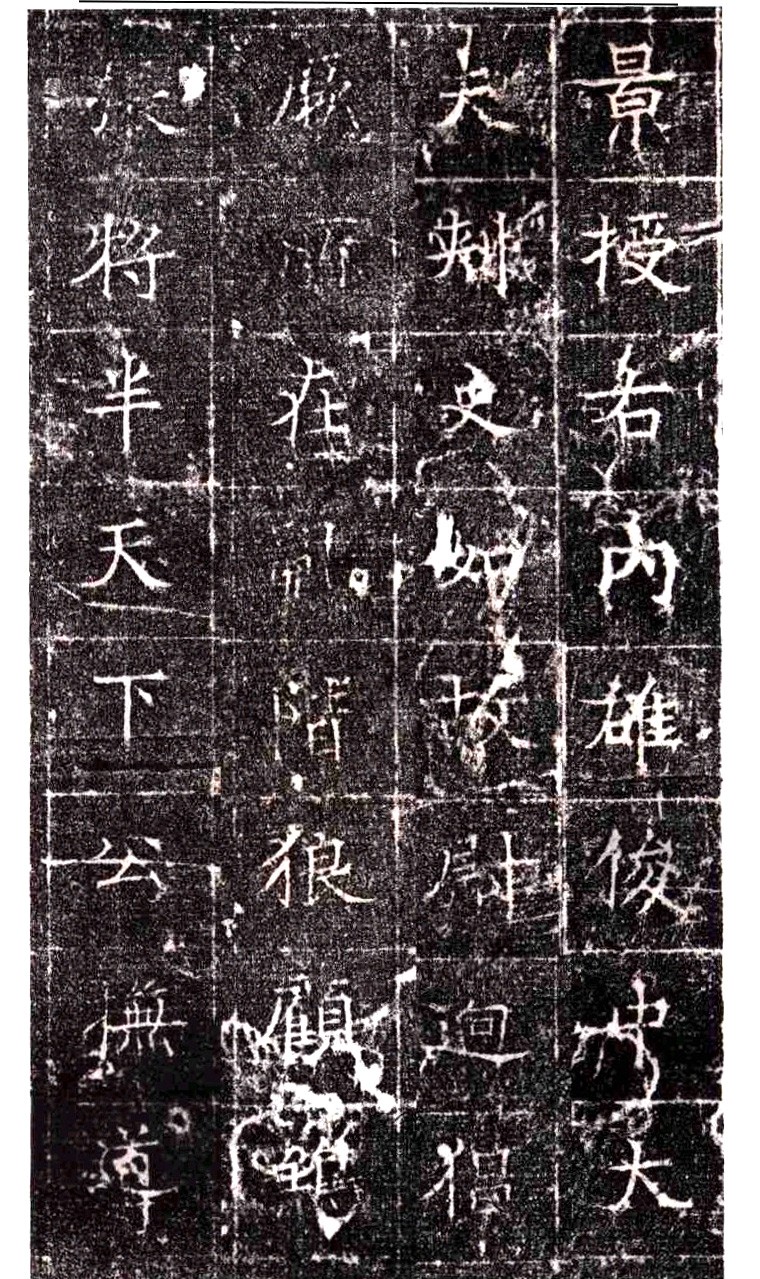 景授名內雄俊沖大
夫刺史如故尉迥猖
厥所在亂階狼顧鴟
將半天下公撫導